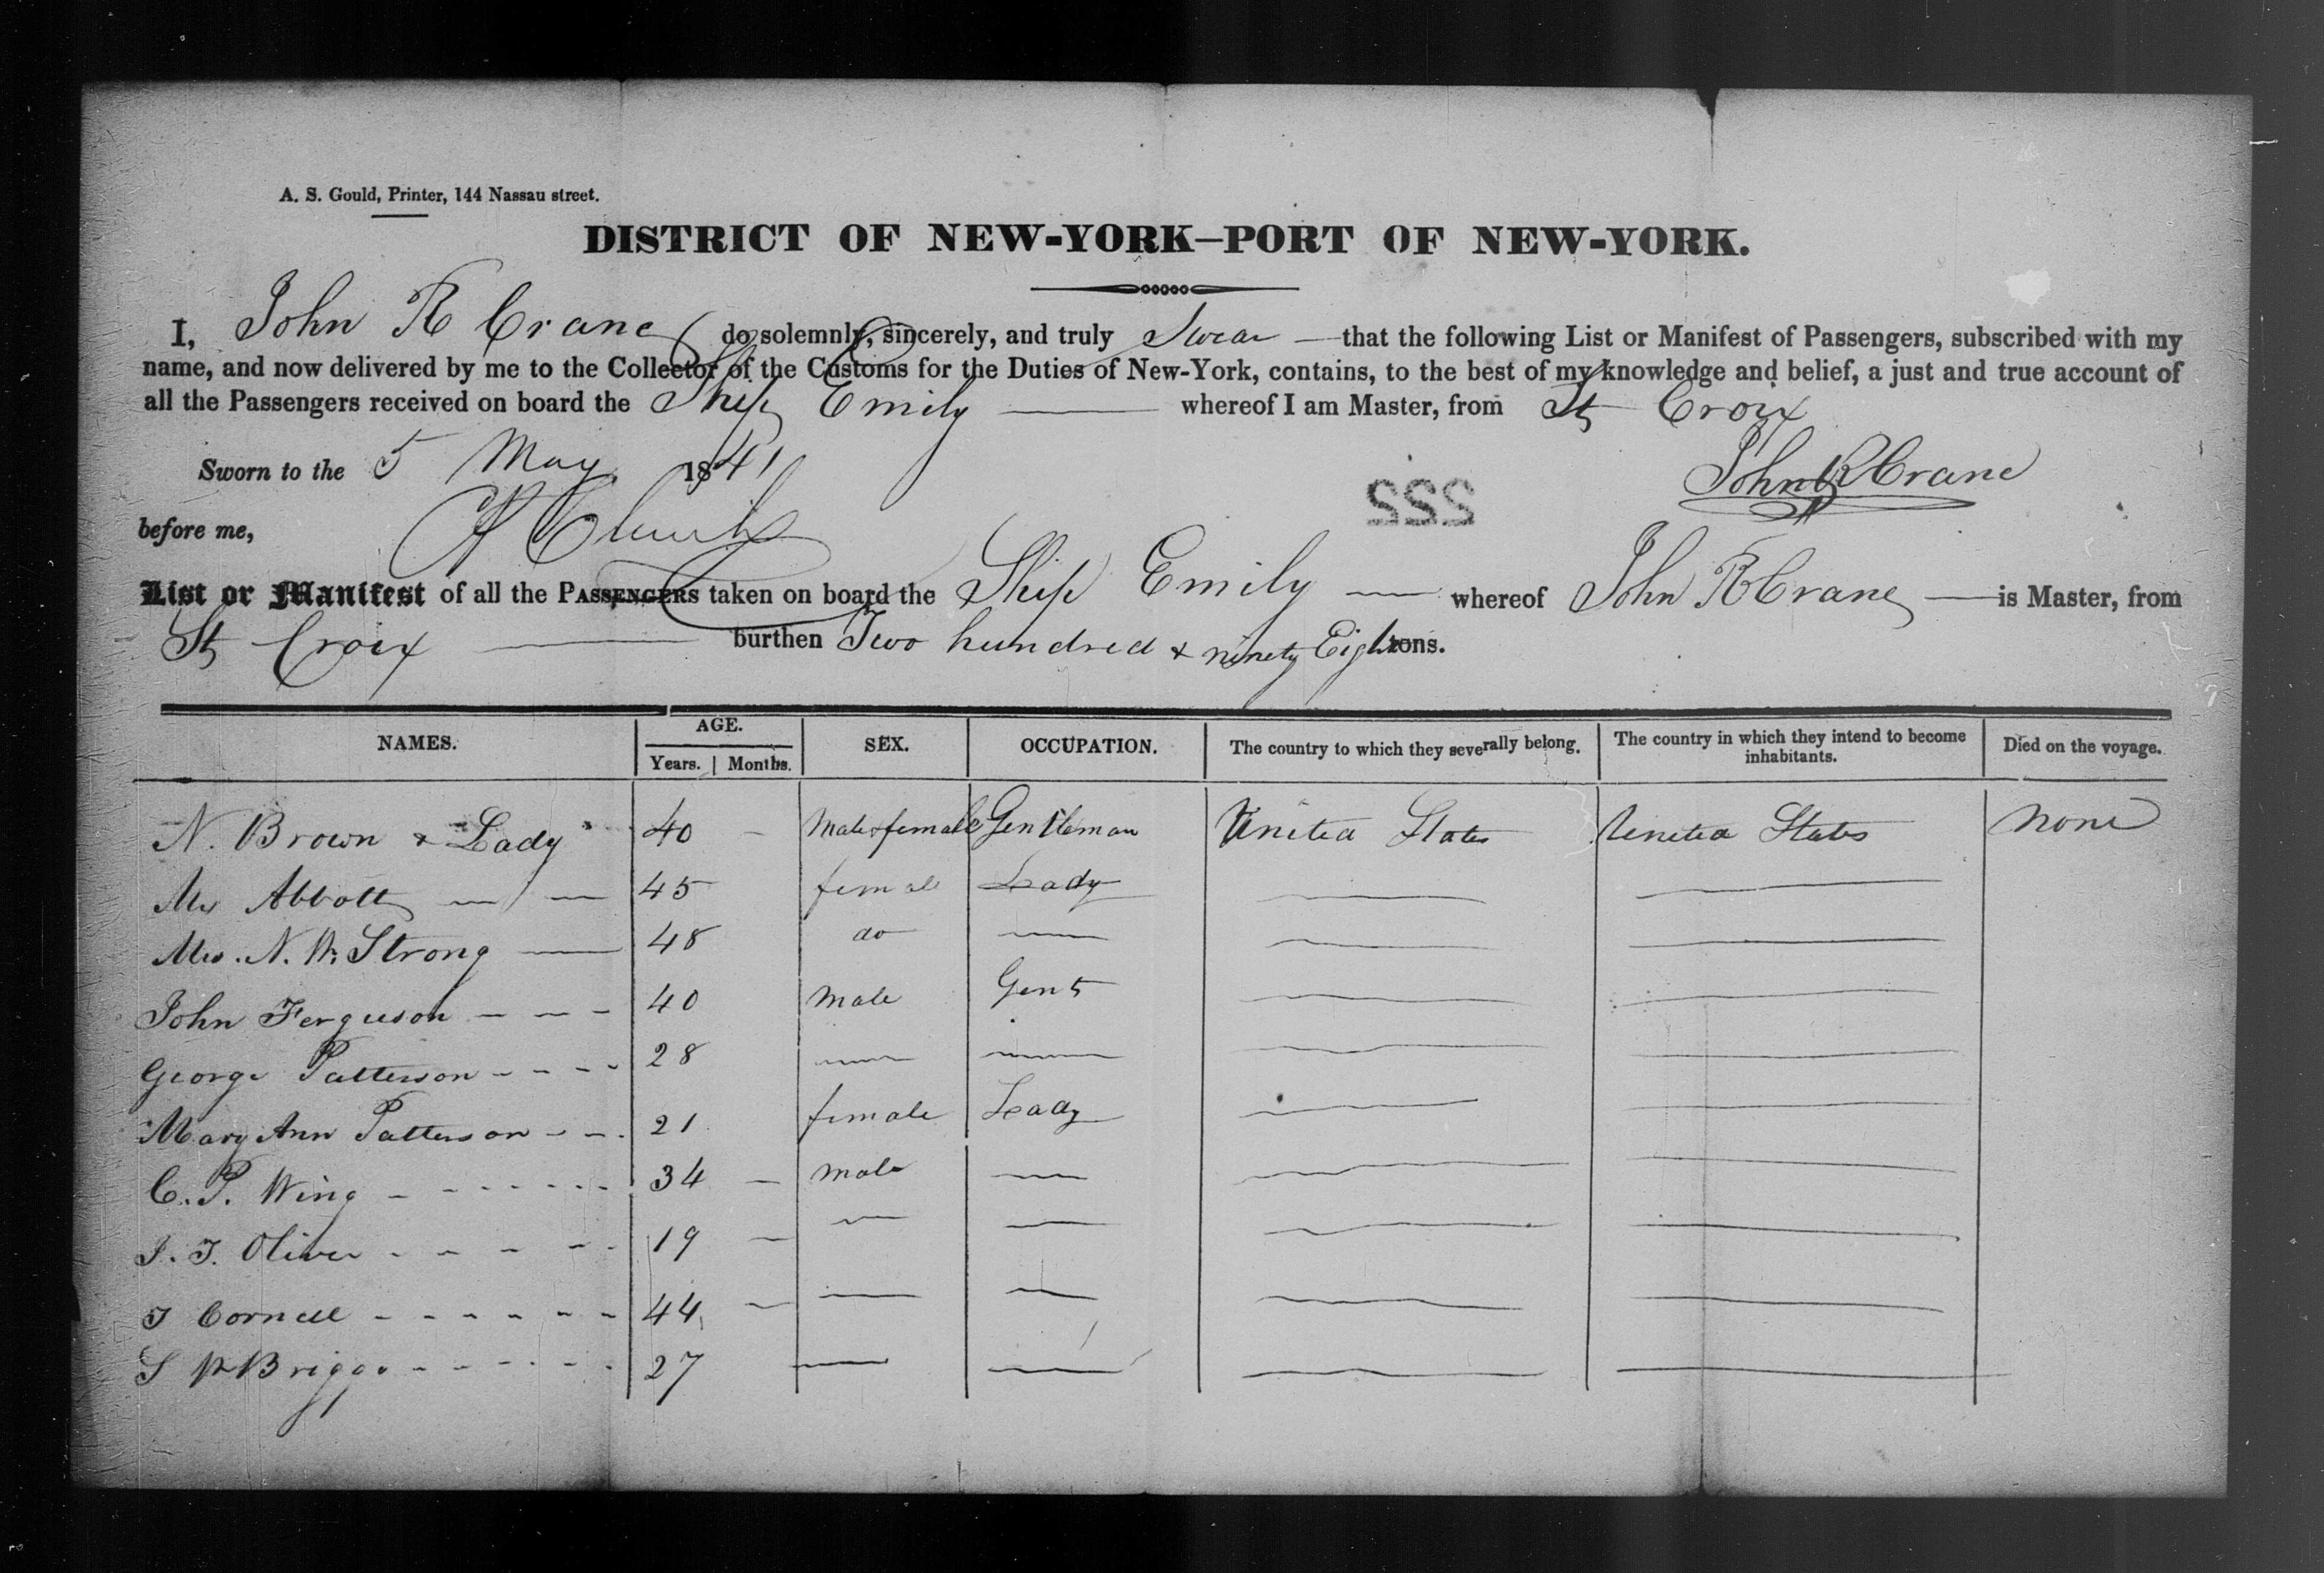 A. S. Gould, Printer, 144 Nassau street.
DISTRICT OF NEW-YORK—PORT OF NEW-YORK.
I, John R Crane do solemnly, sincerely, and truly Swear — that the following List or Manifest of Passengers, subscribed with my
name, and now delivered by me to the Collector of the Customs for the Duties of New-York, contains, to the best of my knowledge and belief, a just and true account of
all the Passengers received on board the Ship Emily — whereof I am Master, from St Croix
Sworn to the 5 May 1841 John R Crane
222
before me,
List or Manifest of all the PASSENGERS taken on board the Ship Emily — whereof John R Crane — is Master, from
St Croix — burthen Two hundred & ninety Eight tons.
NAMES. AGE. SEX. OCCUPATION. The country to which they severally belong. The country in which they intend to become inhabitants. Died on the voyage.
Years. Months.
N. Brown & Lady 40 — Male & female Gentleman United States United States None
Mrs Abbott — — 45 female Lady — —
Mrs. N. W. Strong — 48 do — — —
John Ferguson - - - 40 Male Gent — —
George Patterson - - - - 28 — — — —
Mary Ann Patterson - - - 21 female Lady — —
C. P. Wing - - - - - - - 34 — Male — — —
J. T. Oliver - - - - - 19 — — — — —
T Cornell - - - - - - 44 — — — — —
S W Briggs - - - - - - 27 — — — —